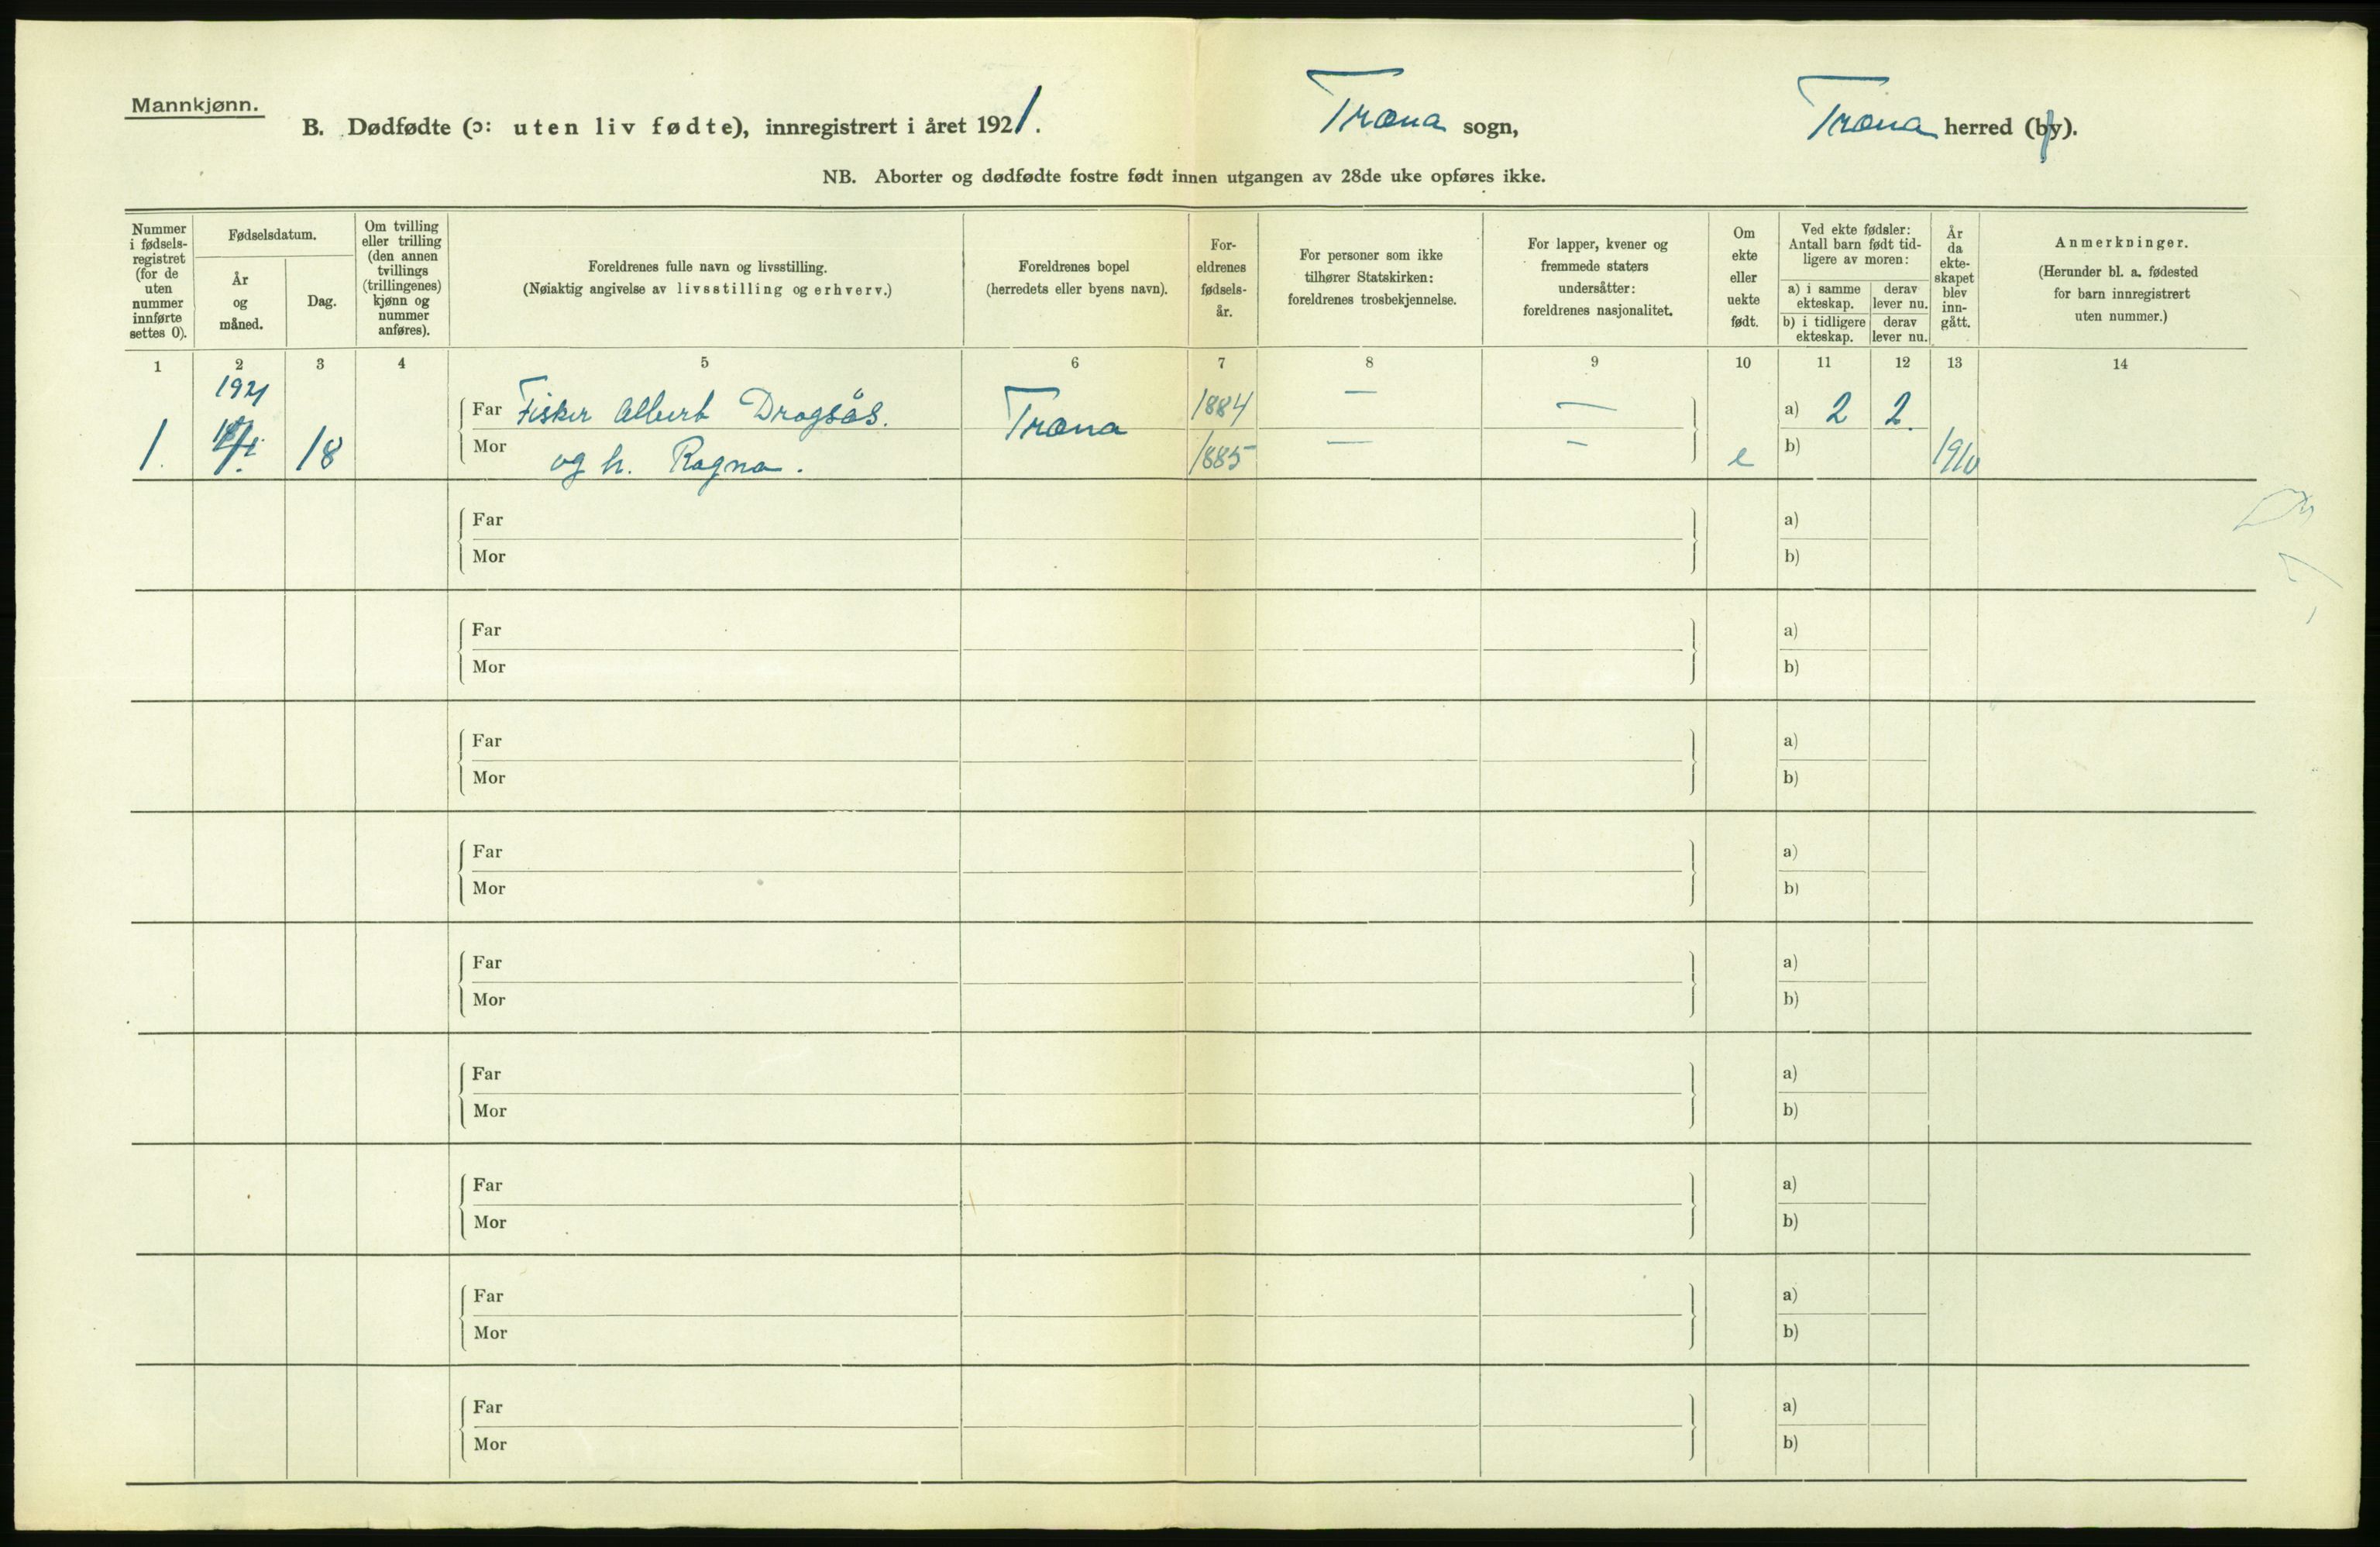 Mannkjønn.
B. Dødfødte (ɔ: uten liv fødte), innregistrert i året 1921. Træna sogn, Træna herred (by).
NB. Aborter og dødfødte fostre født innen utgangen av 28de uke opføres ikke.
Nummer i fødsels-registret (for de uten nummer innførte settes 0).
Fødselsdatum.
År og måned.
Dag.
Om tvilling eller trilling (den annen tvillings (trillingenes) kjønn og nummer anføres).
Foreldrenes fulle navn og livsstilling.
(Nøiaktig angivelse av livsstilling og erhverv.)
Foreldrenes bopel
(herredets eller byens navn).
For-eldrenes fødsels-år.
For personer som ikke tilhører Statskirken: foreldrenes trosbekjennelse.
For lapper, kvener og fremmede staters undersåtter: foreldrenes nasjonalitet.
Om ekte eller uekte født.
Ved ekte fødsler: Antall barn født tid-ligere av moren:
a) i samme ekteskap.
derav lever nu.
b) i tidligere ekteskap.
derav lever nu.
År da ekte-skapet blev inn-gått.
Anmerkninger.
(Herunder bl. a. fødested for barn innregistrert uten nummer.)
1 2 3 4 5 6 7 8 9 10 11 12 13 14
1921
Far Fisker Albert Dragsås. Træna 1884 — — a) 2 2.
1. 18 Mor og h. Ragna. 1885 — — e b) 1910
Far a)
Mor b)
Far a)
Mor b)
Far a)
Mor b)
Far a)
Mor b)
Far a)
Mor b)
Far a)
Mor b)
Far a)
Mor b)
Far a)
Mor b)
Far a)
Mor b)